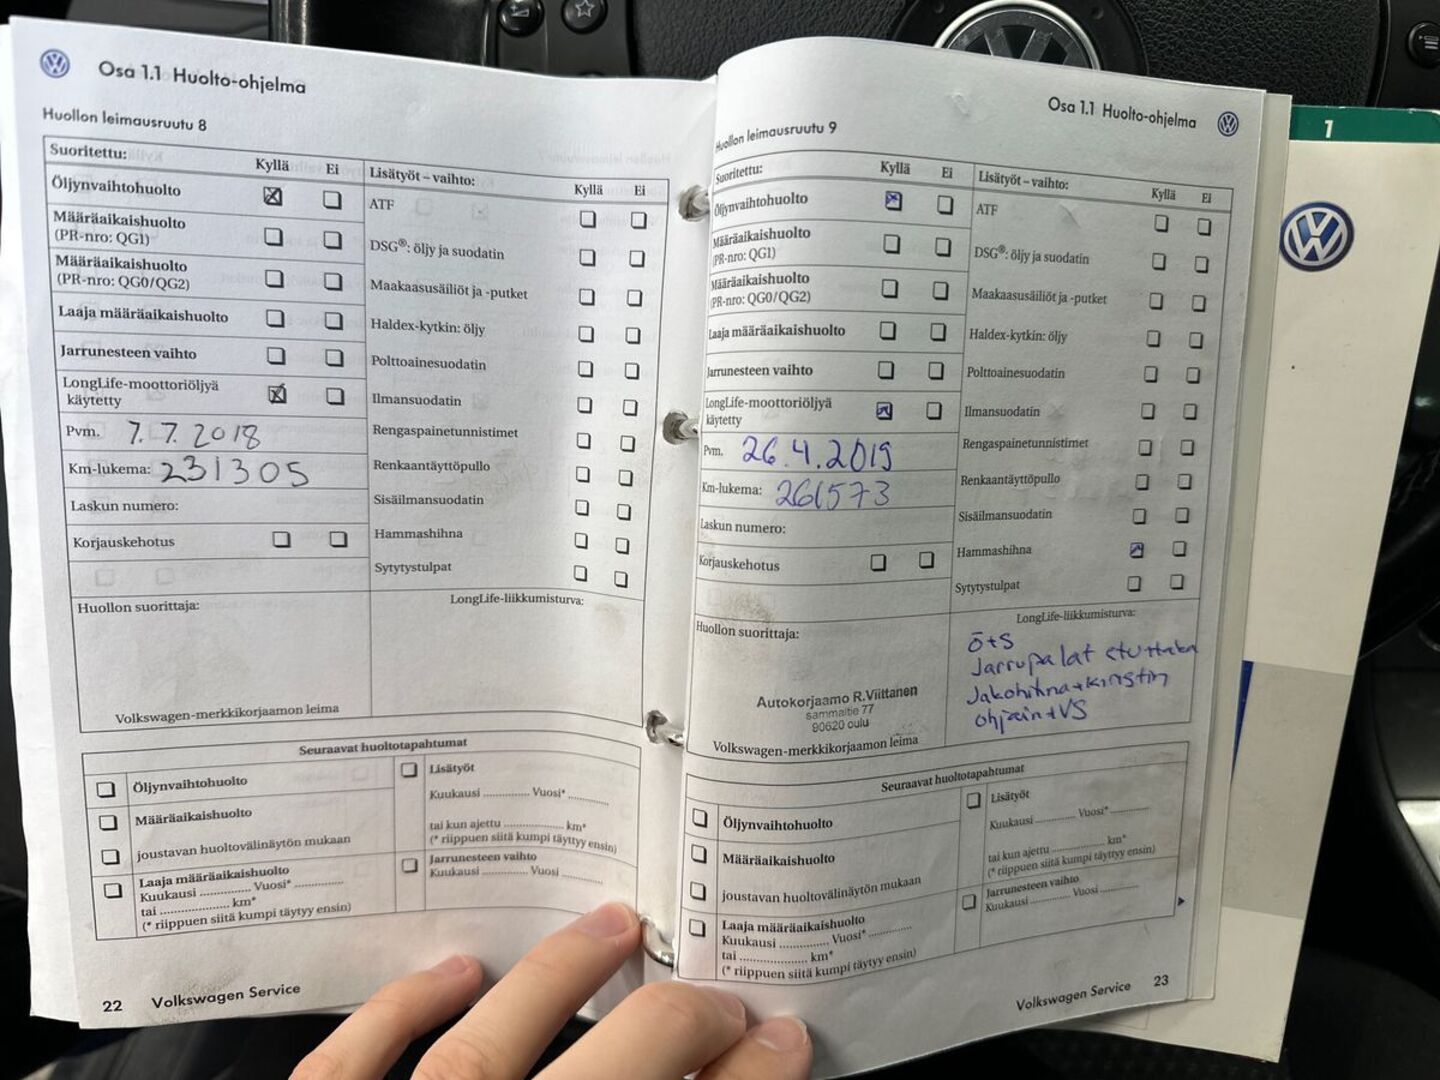 Osa 1.1 Huolto-ohjelma
Huollon leimausruutu 8
Suoritettu: Kyllä Ei
Öljynvaihtohuolto
Määräaikaishuolto
(PR-nro: QG1)
Määräaikaishuolto
(PR-nro: QG0/QG2)
Laaja määräaikaishuolto
Jarrunesteen vaihto
LongLife-moottoriöljyä
käytetty
Pvm. 7.7.2018
Km-lukema: 231305
Laskun numero:
Korjauskehotus
Huollon suorittaja:
Volkswagen-merkkikorjaamon leima
Lisätyöt – vaihto: Kyllä Ei
ATF
DSG®: öljy ja suodatin
Maakaasusäiliöt ja -putket
Haldex-kytkin: öljy
Polttoainesuodatin
Ilmansuodatin
Rengaspainetunnistimet
Renkaantäyttöpullo
Sisäilmansuodatin
Hammashihna
Sytytystulpat
LongLife-liikkumisturva:
Seuraavat huoltotapahtumat
Öljynvaihtohuolto
Määräaikaishuolto
joustavan huoltovälinäytön mukaan
Laaja määräaikaishuolto
Kuukausi .............. Vuosi* ..............
tai .................... km*
(* riippuen siitä kumpi täytyy ensin)
Lisätyöt
Kuukausi .............. Vuosi* ............
tai kun ajettu .................. km*
(* riippuen siitä kumpi täytyy ensin)
Jarrunesteen vaihto
Kuukausi .............. Vuosi ............
22 Volkswagen Service
Osa 1.1 Huolto-ohjelma
Huollon leimausruutu 9
Suoritettu: Kyllä Ei
Öljynvaihtohuolto
Määräaikaishuolto
(PR-nro: QG1)
Määräaikaishuolto
(PR-nro: QG0/QG2)
Laaja määräaikaishuolto
Jarrunesteen vaihto
LongLife-moottoriöljyä
käytetty
Pvm. 26.4.2019
Km-lukema: 261573
Laskun numero:
Korjauskehotus
Huollon suorittaja:
Autokorjaamo R.Viittanen
sammaltie 77
90620 oulu
Volkswagen-merkkikorjaamon leima
Lisätyöt – vaihto: Kyllä Ei
ATF
DSG®: öljy ja suodatin
Maakaasusäiliöt ja -putket
Haldex-kytkin: öljy
Polttoainesuodatin
Ilmansuodatin
Rengaspainetunnistimet
Renkaantäyttöpullo
Sisäilmansuodatin
Hammashihna
Sytytystulpat
LongLife-liikkumisturva:
ö+s
Jarrupalat etu+taka
Jakohihna+kiristin
ohjain+VS
Seuraavat huoltotapahtumat
Öljynvaihtohuolto
Määräaikaishuolto
joustavan huoltovälinäytön mukaan
Laaja määräaikaishuolto
Kuukausi .............. Vuosi* ............
tai .................... km*
(* riippuen siitä kumpi täytyy ensin)
Lisätyöt
Kuukausi ............ Vuosi* ............
tai kun ajettu ................ km*
(* riippuen siitä kumpi täytyy ensin)
Jarrunesteen vaihto
Kuukausi ............ Vuosi ............
Volkswagen Service 23
1